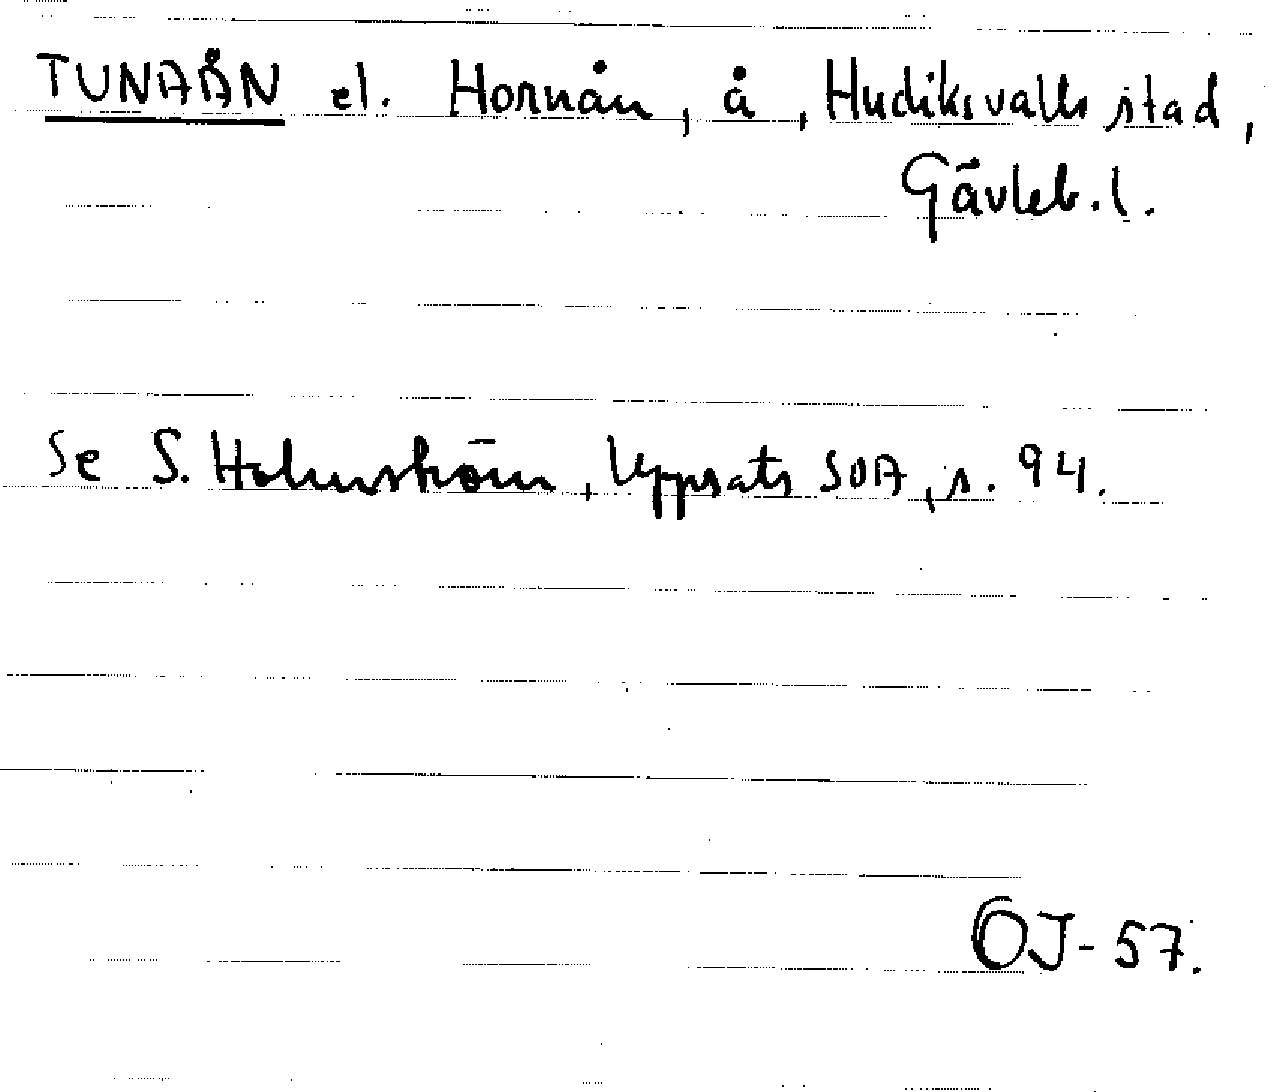 TUNAÅN el. Hornån, å, Hudiksvalls stad,
Gävleb. l.
Se S. Holmström, Uppsats SOA, s. 94.
OJ-57.